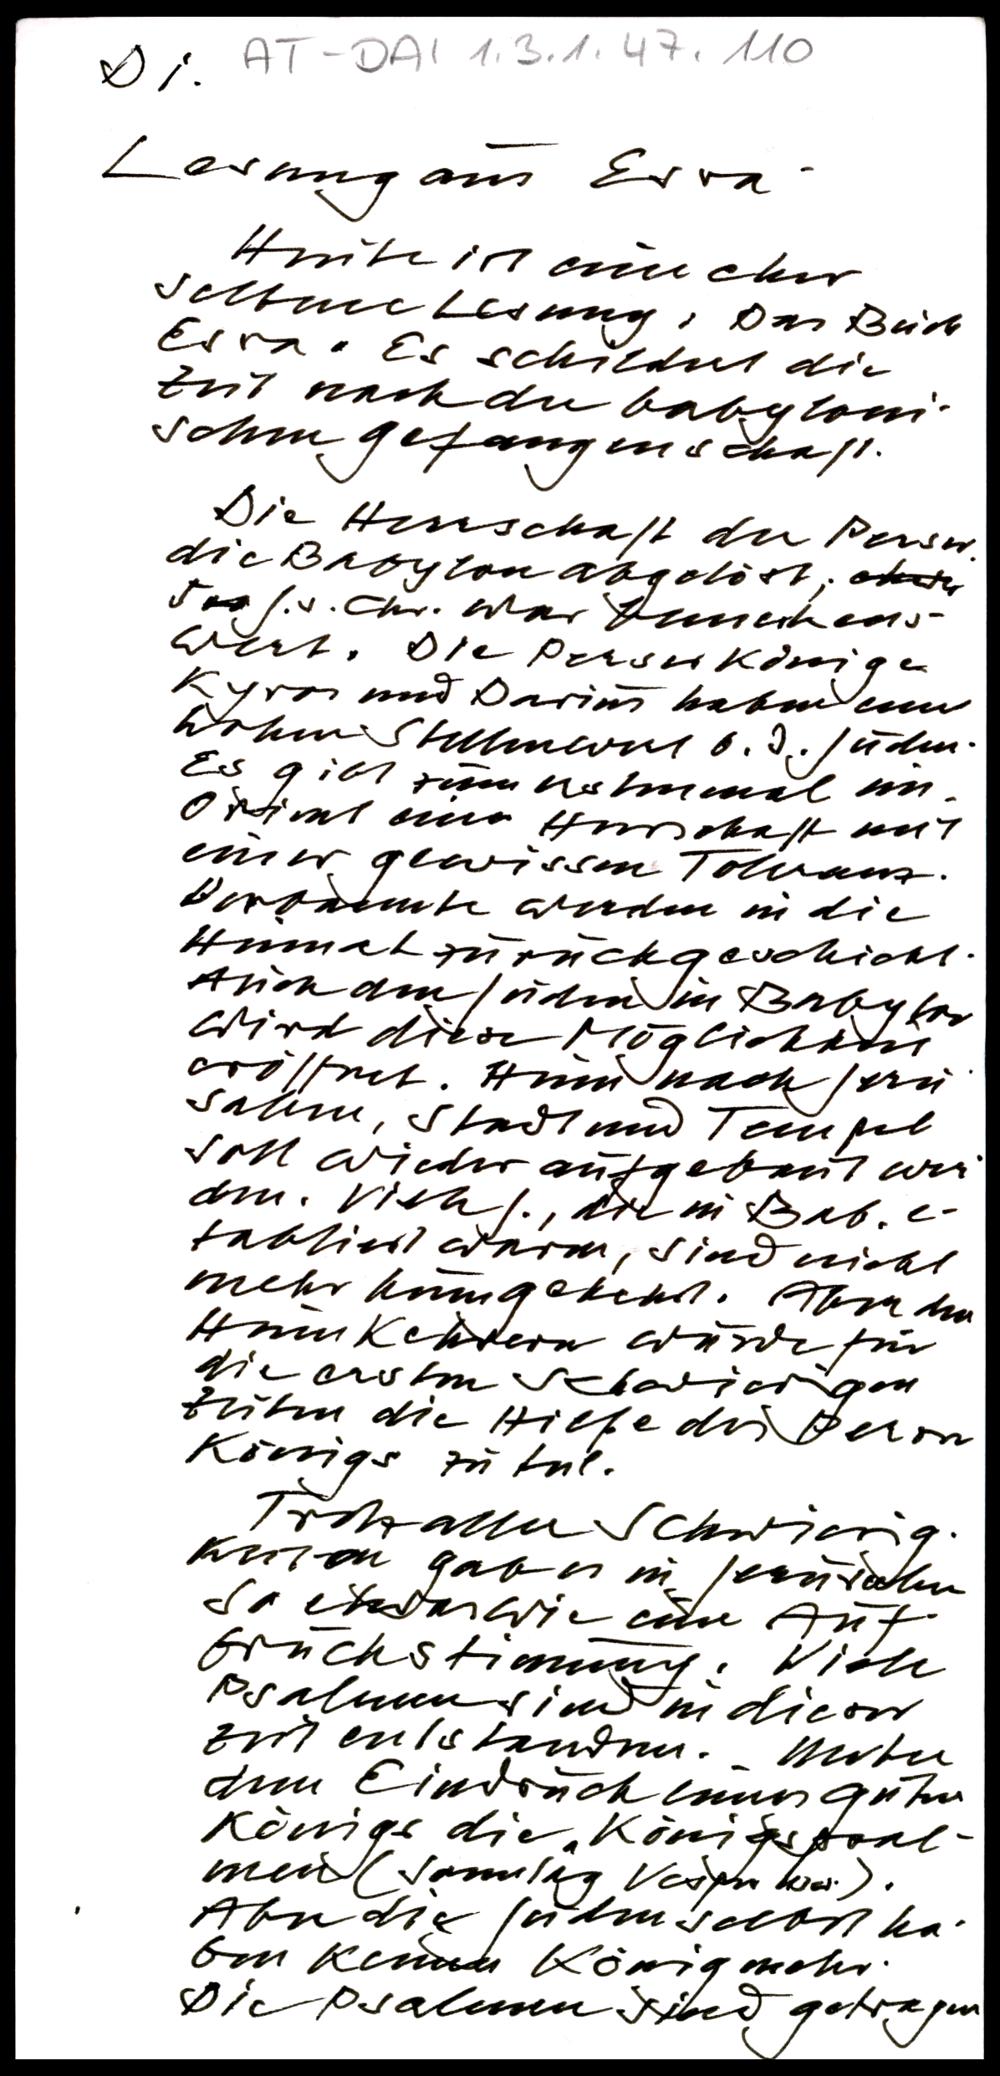 Di. AT-DAI 1.3.1.47.110
Lesung aus Esra
Heute ist eine eher
seltene Lesung: Das Buch
Esra. Es schildert die
Zeit nach der babyloni-
schen Gefangenschaft.
Die Herrschaft der Perser,
die Babylon abgelöst,
v. Chr. war bemerkens-
wert. Die Perserkönige
Kyros und Darius haben einen
hohen Stellenwert b. d. Juden.
Es gibt zum erstenmal im
Orient eine Herrschaft mit
einer gewissen Toleranz.
Verbannte werden in die
Heimat zurückgeschickt.
Auch den Juden in Babylon
wird diese Möglichkeit
eröffnet. Heim nach Jeru
salem, Stadt und Tempel
soll wieder aufgebaut wer
den. Viele J., die in Bab. e-
tabliert waren, sind nicht
mehr heimgekehrt. Aber den
Heimkehrern wurde für
die ersten schwierigen
Zeiten die Hilfe des Perser
Königs zu teil.
Trotz aller Schwierig-
keiten gab es in Jerusalem
so etwas wie eine Auf-
bruchstimmung. Viele
Psalmen sind in dieser
Zeit entstanden. Unter
dem Eindruck eines guten
Königs die „Königspsal-
men (Sonntag Vesper).
Aber die Juden selbst ha-
ben keinen König mehr.
Die Psalmen sind getragen